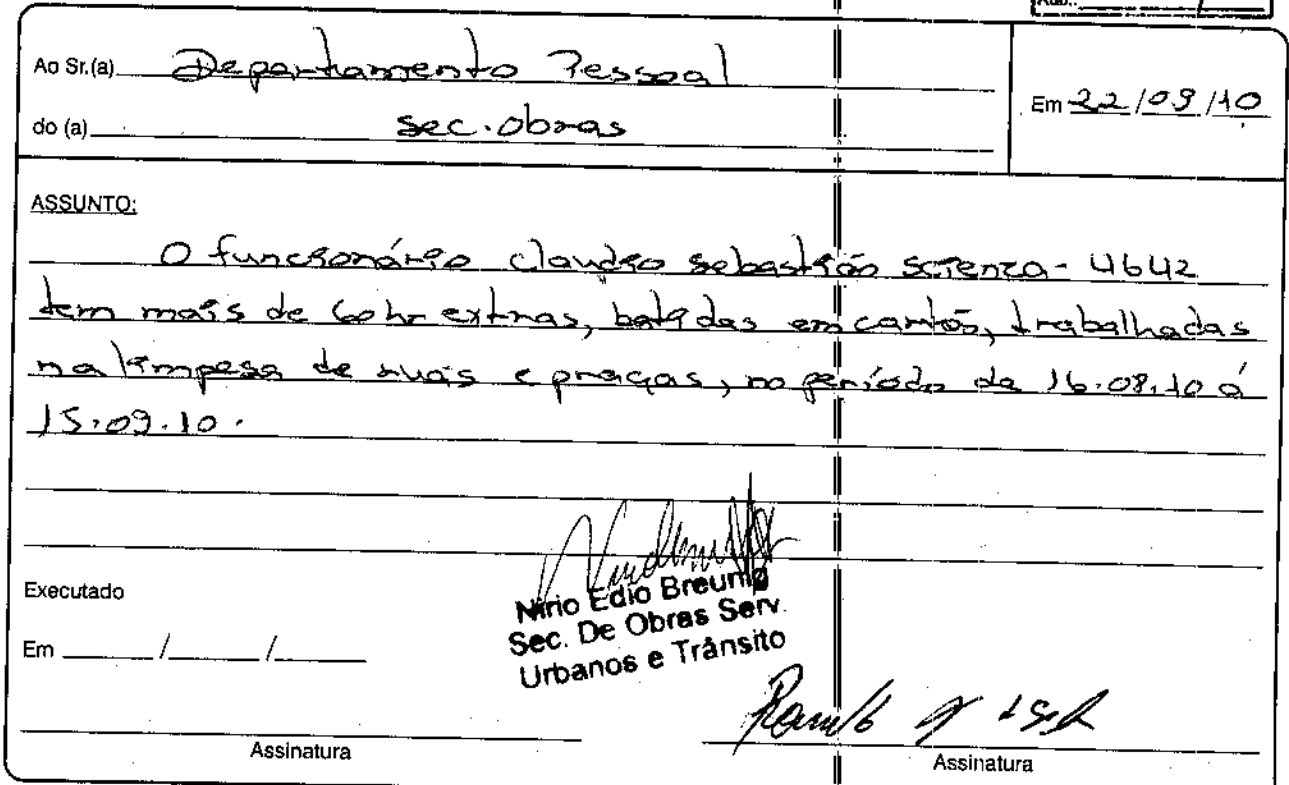 Ao Sr.(a) Departamento Pessoal
do (a) sec. obras
Em 22/09/10
ASSUNTO:
O funcionário claudio sebastião scienza - 4642
tem mais de 60 hr extras, batidas em cartão, trabalhadas
na limpesa de ruas e praças, no período de 16.08.10 á
15.09.10.
Executado
Em / /
Nirio Edio Breunig
Sec. De Obras Serv.
Urbanos e Trânsito
Assinatura
Assinatura